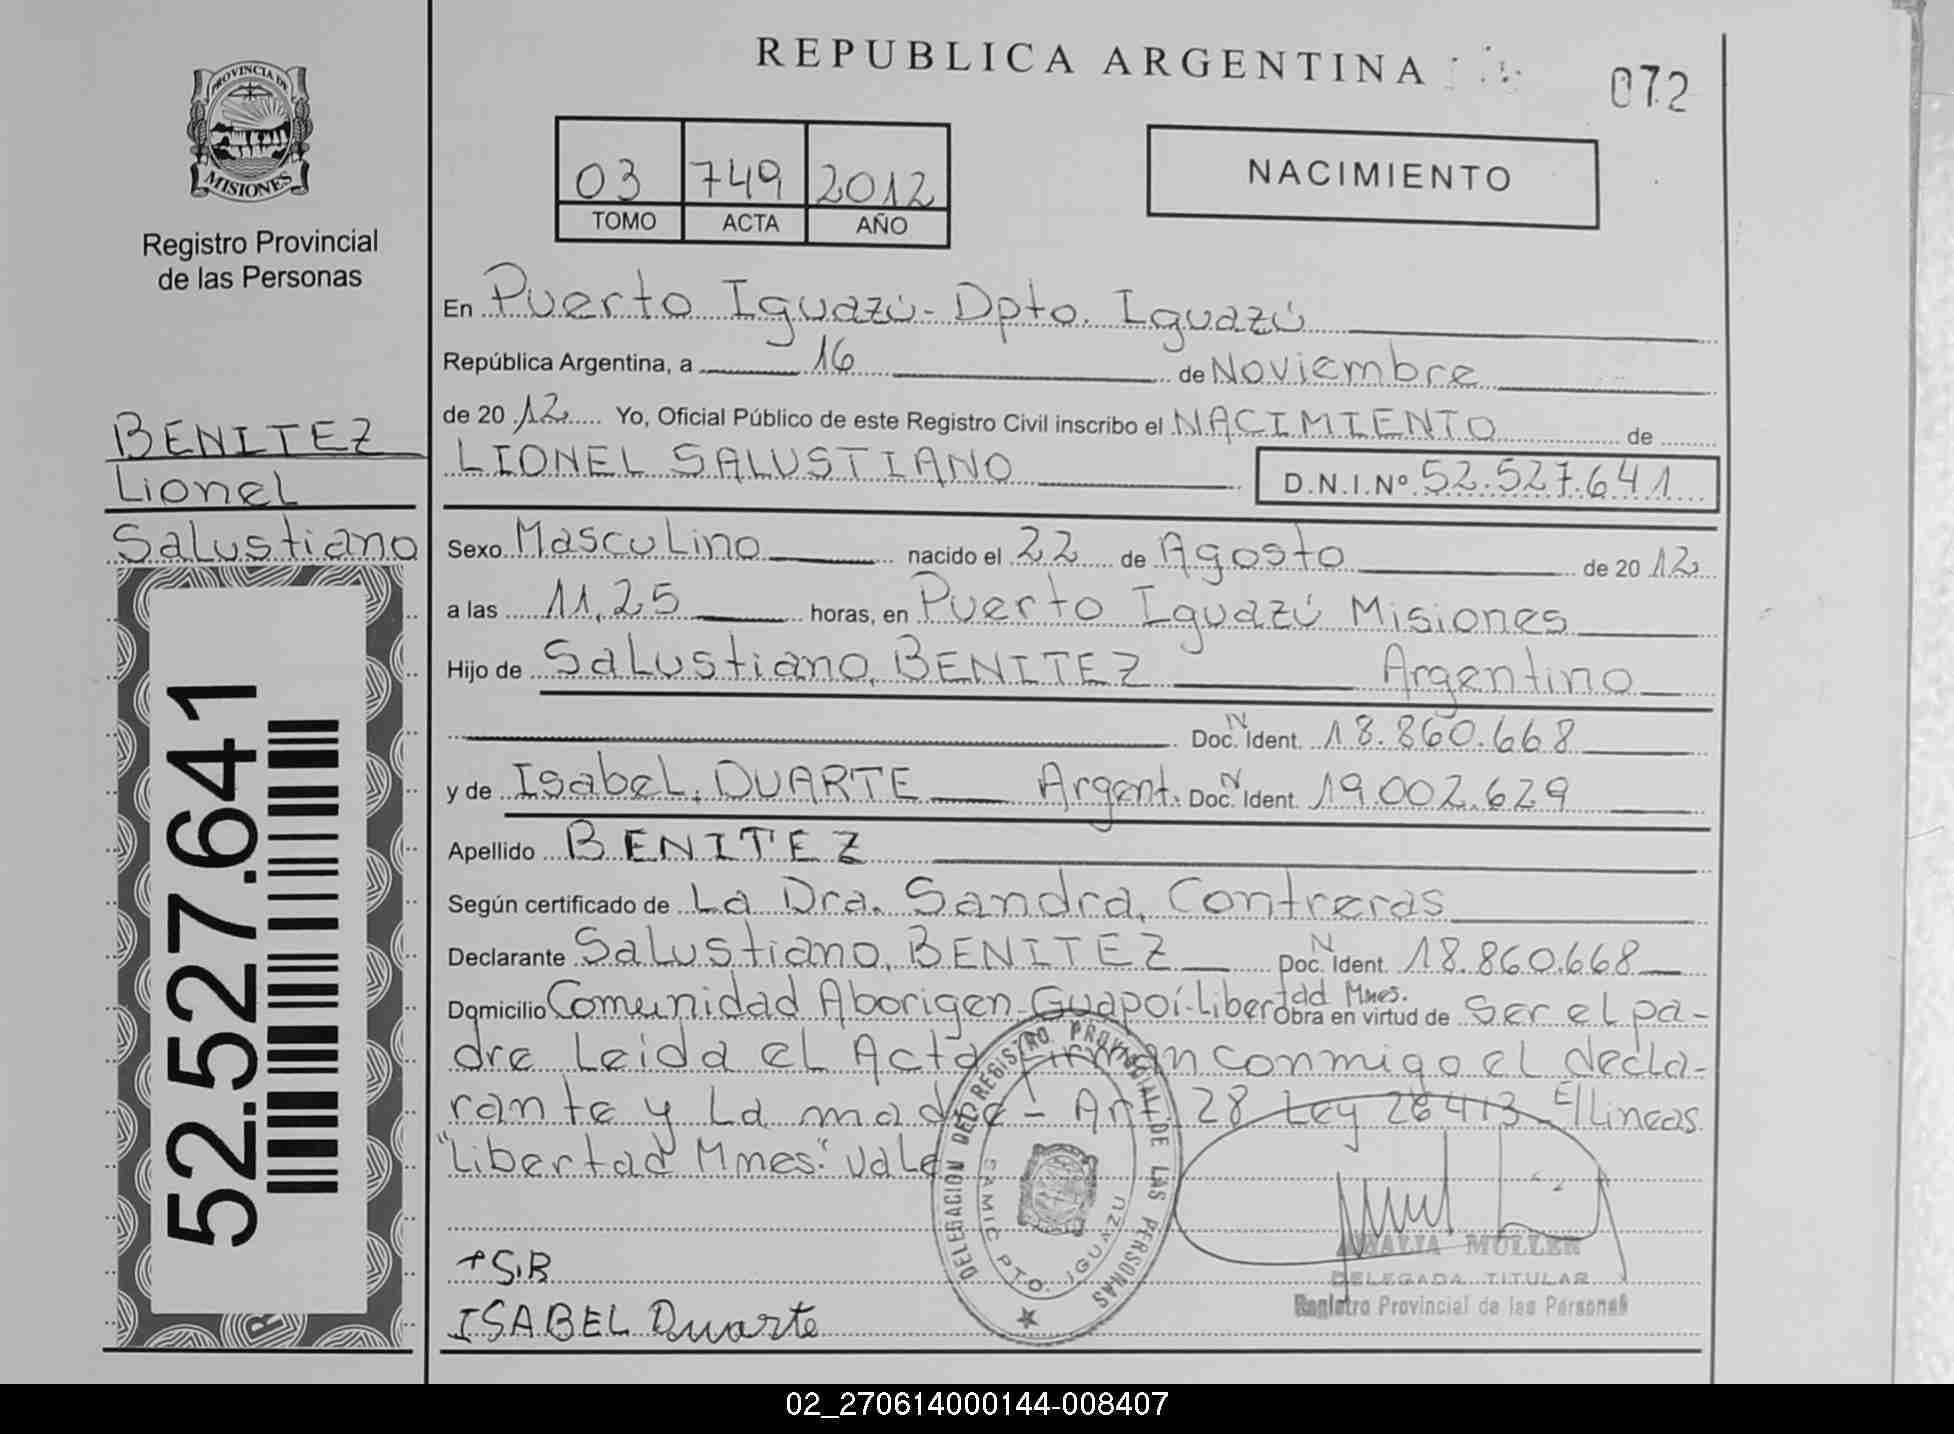 REPUBLICA ARGENTINA
072
PROVINCIA DE
MISIONES
Registro Provincial
de las Personas
03 749 2012
TOMO ACTA AÑO
NACIMIENTO
En Puerto Iguazú - Dpto. Iguazú
República Argentina, a 16 de Noviembre
de 20 12 Yo, Oficial Público de este Registro Civil inscribo el NACIMIENTO de
LIONEL SALUSTIANO D.N.I.Nº 52.527.641
BENITEZ
Lionel
Salustiano
52.527.641
Sexo Masculino nacido el 22 de Agosto de 20 12
a las 11,25 horas, en Puerto Iguazú Misiones
Hijo de Salustiano, BENITEZ Argentino
Doc. N Ident. 18.860.668
y de Isabel, DUARTE Argent. Doc. N Ident. 19.002.629
Apellido BENITEZ
Según certificado de La Dra. Sandra, Contreras
Declarante Salustiano, BENITEZ Doc. N Ident. 18.860.668
Domicilio Comunidad Aborigen Guapoí-Libertad Mnes. Obra en virtud de ser el pa-
dre Leida el Acta Firman conmigo el decla-
rante y la madre - Art. 28 Ley 26413 E/lineas
"Libertad Mnes." Vale
DELEGACION DEL REGISTRO PROVINCIAL DE LAS PERSONAS
SAMIC PTO. IGUAZU
+ S.B
ISABEL Duarte
MULLER
DELEGADA TITULAR
Registro Provincial de las Personas
02_270614000144-008407